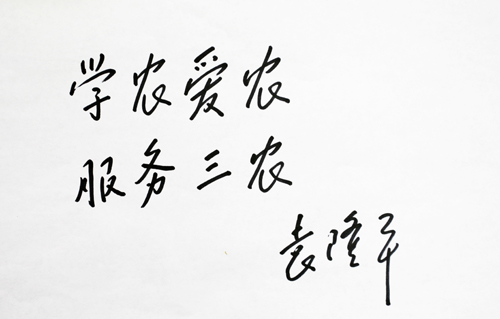 学农爱农
服务三农
袁隆平